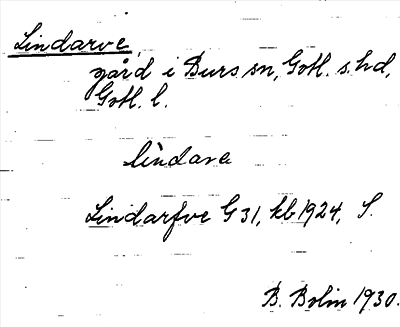 Lindarve
gård i Burs sn, Gotl. s. hd,
Gotl. l.
lìndara
Lindarfve G 31, kb 1924, S.
B. Bolin 1930.